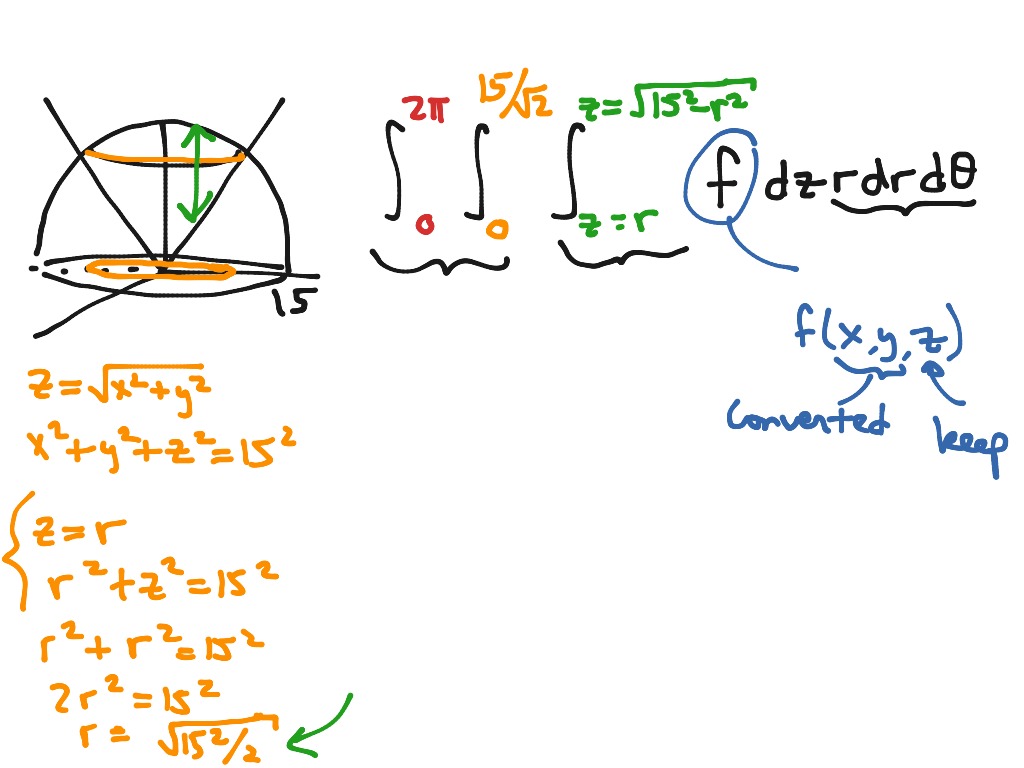 2π 15/√2 z=√15²-r²
∫ ∫ ∫ f dz rdrdθ
0 0 z=r
15
f(x,y,z)
converted keep
z=√x²+y²
x²+y²+z²=15²
z=r
r²+z²=15²
r²+r²=15²
2r²=15²
r= √15²/2